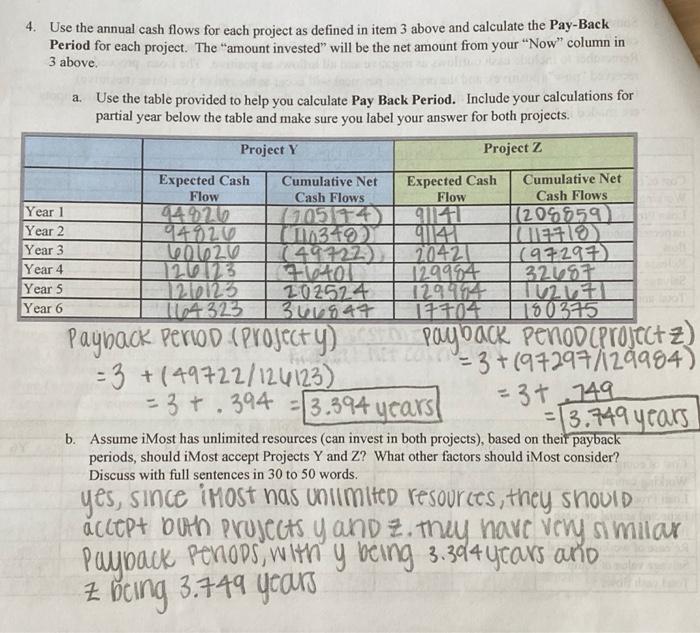 4. Use the annual cash flows for each project as defined in item 3 above and calculate the Pay-Back
Period for each project. The "amount invested" will be the net amount from your "Now" column in
3 above.
a. Use the table provided to help you calculate Pay Back Period. Include your calculations for
partial year below the table and make sure you label your answer for both projects.
Project Y Project Z
Expected Cash Flow Cumulative Net Cash Flows Expected Cash Flow Cumulative Net Cash Flows
Year 1 94826 (205174) 91141 (208859)
Year 2 94826 (110348) 91141 (117718)
Year 3 60626 (49722) 20421 (97297)
Year 4 126123 76401 129984 32687
Year 5 126123 202524 129984 162671
Year 6 164323 366847 17704 180375
Payback Period (Project y) Payback Period (project z)
= 3 + (49722/126123) = 3 + (97297/129984)
= 3 + .394 = 3.394 years = 3 + .749
= 3.749 years
b. Assume iMost has unlimited resources (can invest in both projects), based on their payback
periods, should iMost accept Projects Y and Z? What other factors should iMost consider?
Discuss with full sentences in 30 to 50 words.
yes, since iMost has unlimited resources, they should
accept both projects y and z. They have very similar
Payback Periods, with y being 3.394 years and
z being 3.749 years